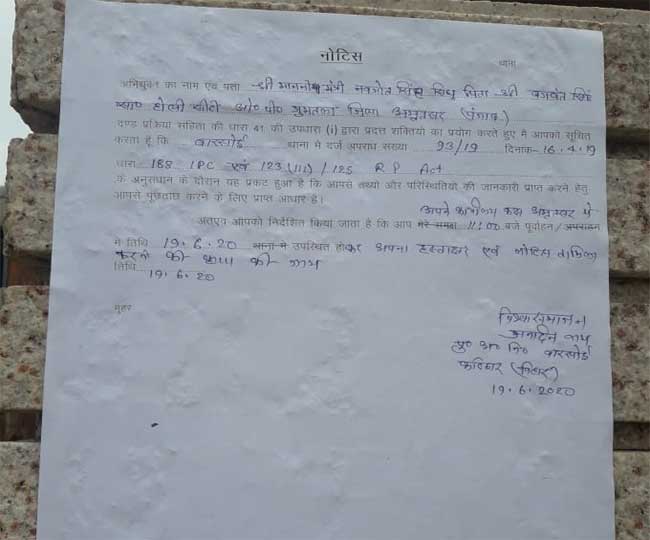 नोटिस
थाना
अभियुक्त का नाम एवं पता - श्री माननीय मंत्री नवजोत सिंह सिधु पिता - श्री
होली सीटी ओ० पी० जिला अमृतसर (पंजाब)
दण्ड प्रक्रिया संहिता की धारा 41 की उपधारा (i) द्वारा प्रदत्त शक्तियों का प्रयोग करते हुए मैं आपको सूचित
करता हूँ कि बारसोई थाना में दर्ज अपराध संख्या 93/19 दिनांक- 16.4.19
धारा 188 IPC एवं 123(III)/125 R P Act
के अनुसंधान के दौरान यह प्रकट हुआ है कि आपसे तथ्यों और परिस्थितियों की जानकारी प्राप्त करने हेतु
आपसे पूछताछ करने के लिए प्राप्त आधार है।
अपने कार्यालय कक्ष अमृतसर में
अतएव आपको निर्देशित किया जाता है कि आप मेरे समक्ष 11:00 बजे पूर्वाहन/अपराहन
में तिथि 19.6.20 थाना में उपस्थित होकर अपना हस्ताक्षर एवं नोटिस तामिला
करने की कृपा की जाय
तिथि 19.6.20
मुहर
जनार्दन राम
पु० अ० नि० बारसोई
कटिहार (बिहार)
19.6.2020